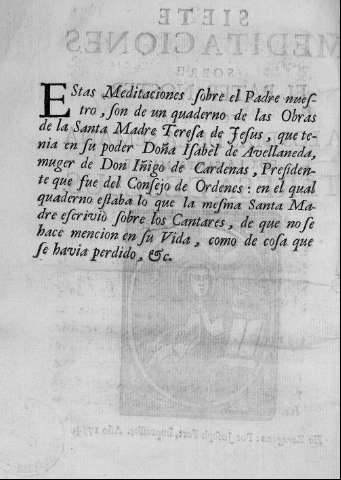 EStas Meditaciones sobre el Padre nues-
tro, son de un quaderno de las Obras
de la Santa Madre Teresa de Jesus, que te-
nia en su poder Doña Isabèl de Avellaneda,
muger de Don Iñigo de Cardenas, Presiden-
te que fue del Consejo de Ordenes: en el qual
quaderno estaba lo que la mesma Santa Ma-
dre escriviò sobre los Cantares, de que no se
hace mencion en su Vida, como de cosa que
se havia perdido, &c.